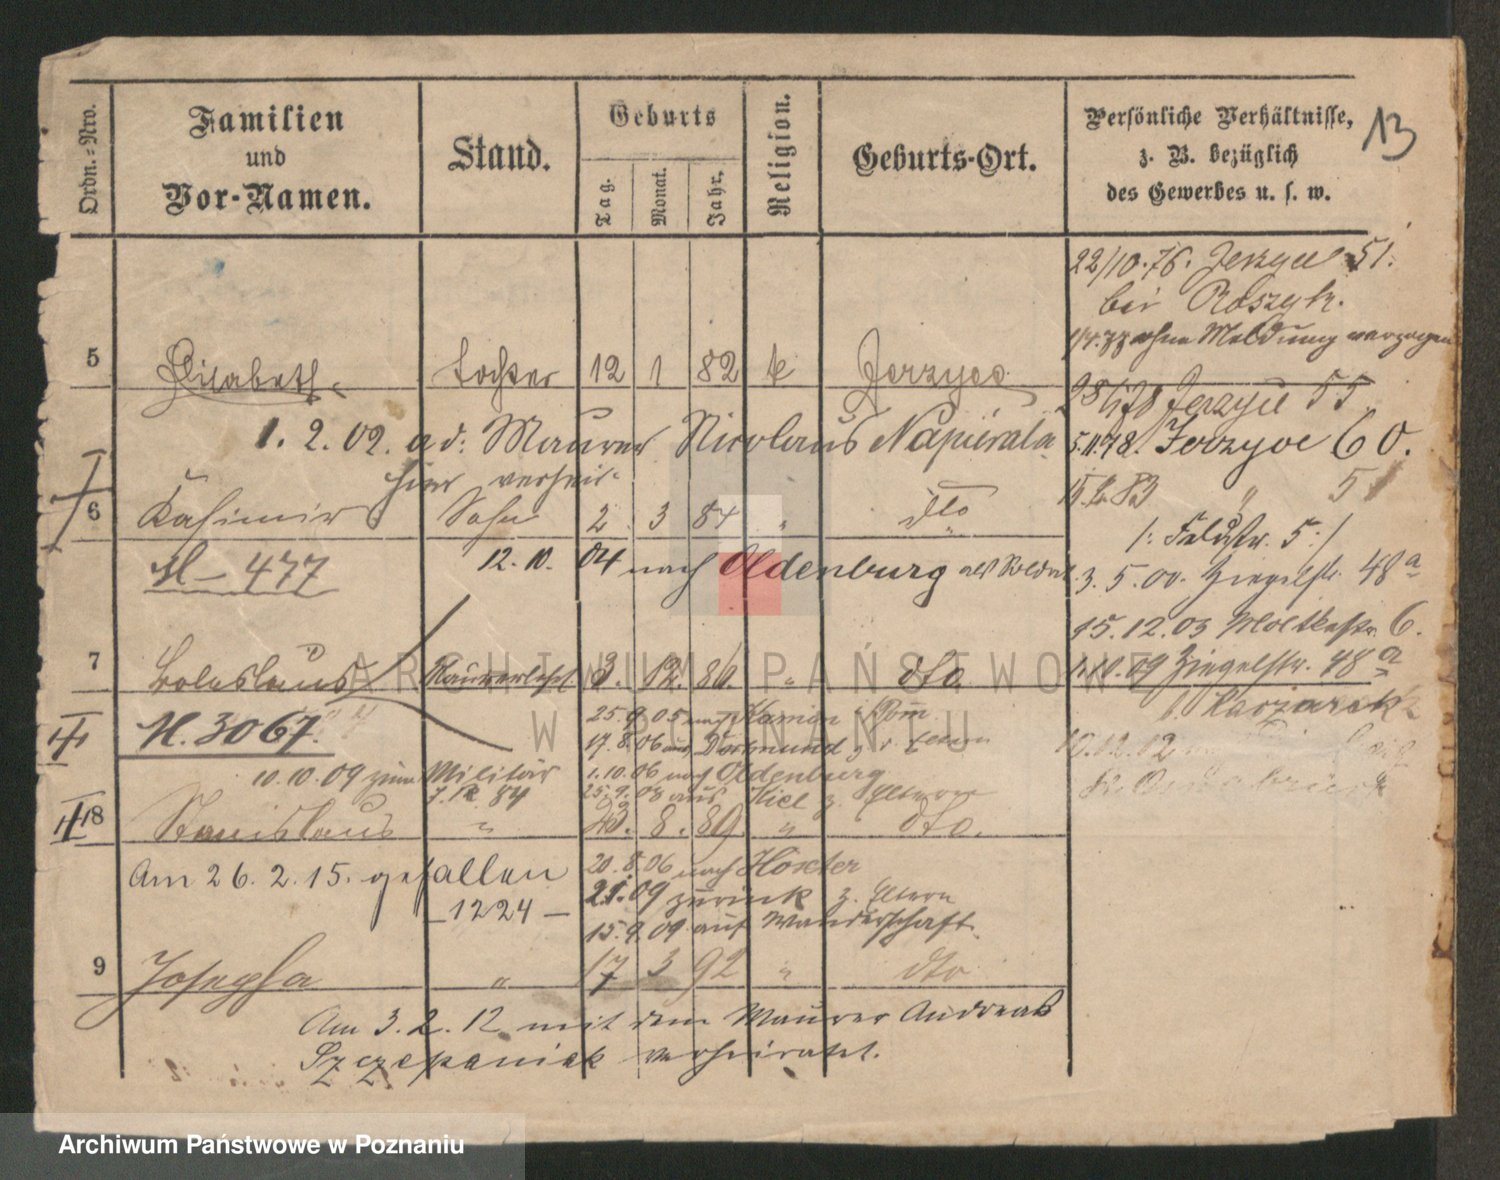 Ordn.-Nro.
Familien
und
Vor-Namen.
Stand.
Geburts
Tag.
Monat.
Jahr.
Religion.
Geburts-Ort.
Persönliche Verhältnisse,
z. B. bezüglich
des Gewerbes u. s. w.
13
22/10.76. Jerzyce 51.
bei
ohne Meldung verzogen
5 Elisabeth Tochter 12 1 82 k Jerzyce
78 Jerzyce 55
1. 2. 02. ad: Maurer Nicolaus Napierala
hier verheir.
5.11.78. Jerzyce 60.
83 " 5
6 Kasimir Sohn 2 3 84 " dto
/: Feldstr. 5 :/
M – 477
12. 10. 04 nach Oldenburg als Soldat
3. 5. 00. Ziegelstr. 48a
15. 12. 03 Moltkestr. 6.
7 Boleslaus Maurerlehrl 3. 12. 86. " dto.
1.10.09 Ziegelstr. 48a
Kaczarek
M. 3067.
25. 9. 05 nach Kamin i/Pom
17. 8. 06 aus Dortmund z. d. Eltern
10. 10. 09 zum Militär
1. 10. 06 nach Oldenburg
25. 9. 08 aus Kiel z. Eltern
10.12.12
8 Stanislaus " 8. 89 " dto.
Am 26. 2. 15. gefallen
– 1224 –
20. 8. 06 nach Höxter
09 zurück z. Eltern
15. 9. 09 auf Wanderschaft
9 Josepha " 17 3 92 " dto
Am 3. 2. 12 mit dem Maurer Andreas
Szczepaniak verheiratet.
ARCHIWUM PAŃSTWOWE
W POZNANIU
Archiwum Państwowe w Poznaniu